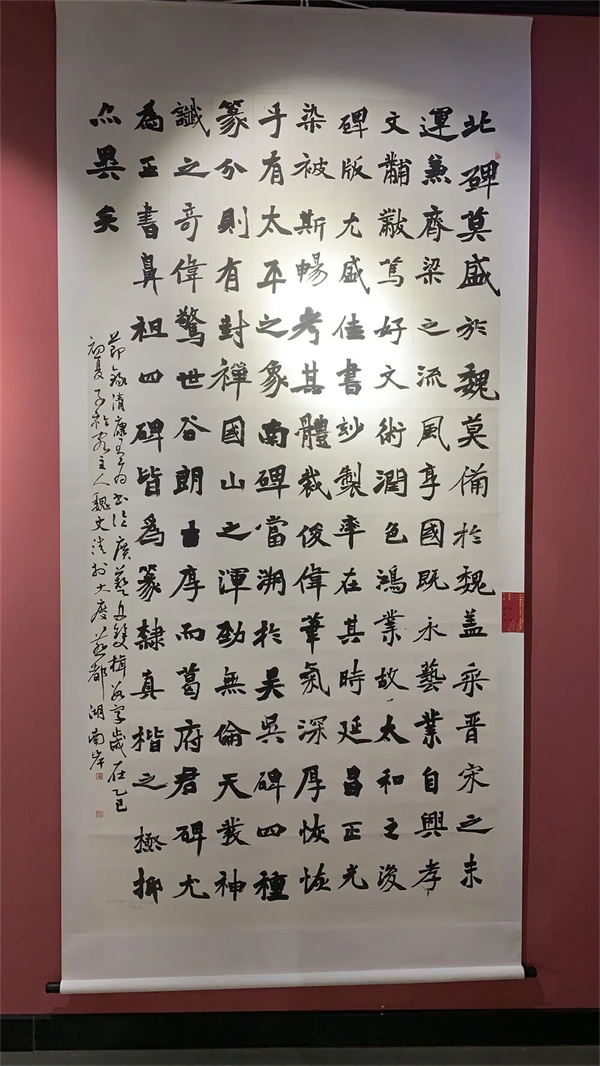 北碑莫盛於魏莫備於魏蓋乘晉宋之末
運兼齊梁之流風享國既永藝業自興孝
文黼黻篤好文術潤色鴻業故太和之後
碑版尤盛佳書妙製率在其時延昌正光
染被斯暢考其體裁俊偉筆氣深厚恢恢
乎有太平之象南碑當溯於吳吳碑四種
篆分則有封禪國山之渾勁無倫天發神
讖之奇偉驚世谷朗古厚而葛府君碑尤
為正書鼻祖四碑皆爲篆隸真楷之極抑
亦異矣
節錄清康有為書論廣藝舟雙楫歲在乙巳
初夏主人魏文於大慶都湖南岸